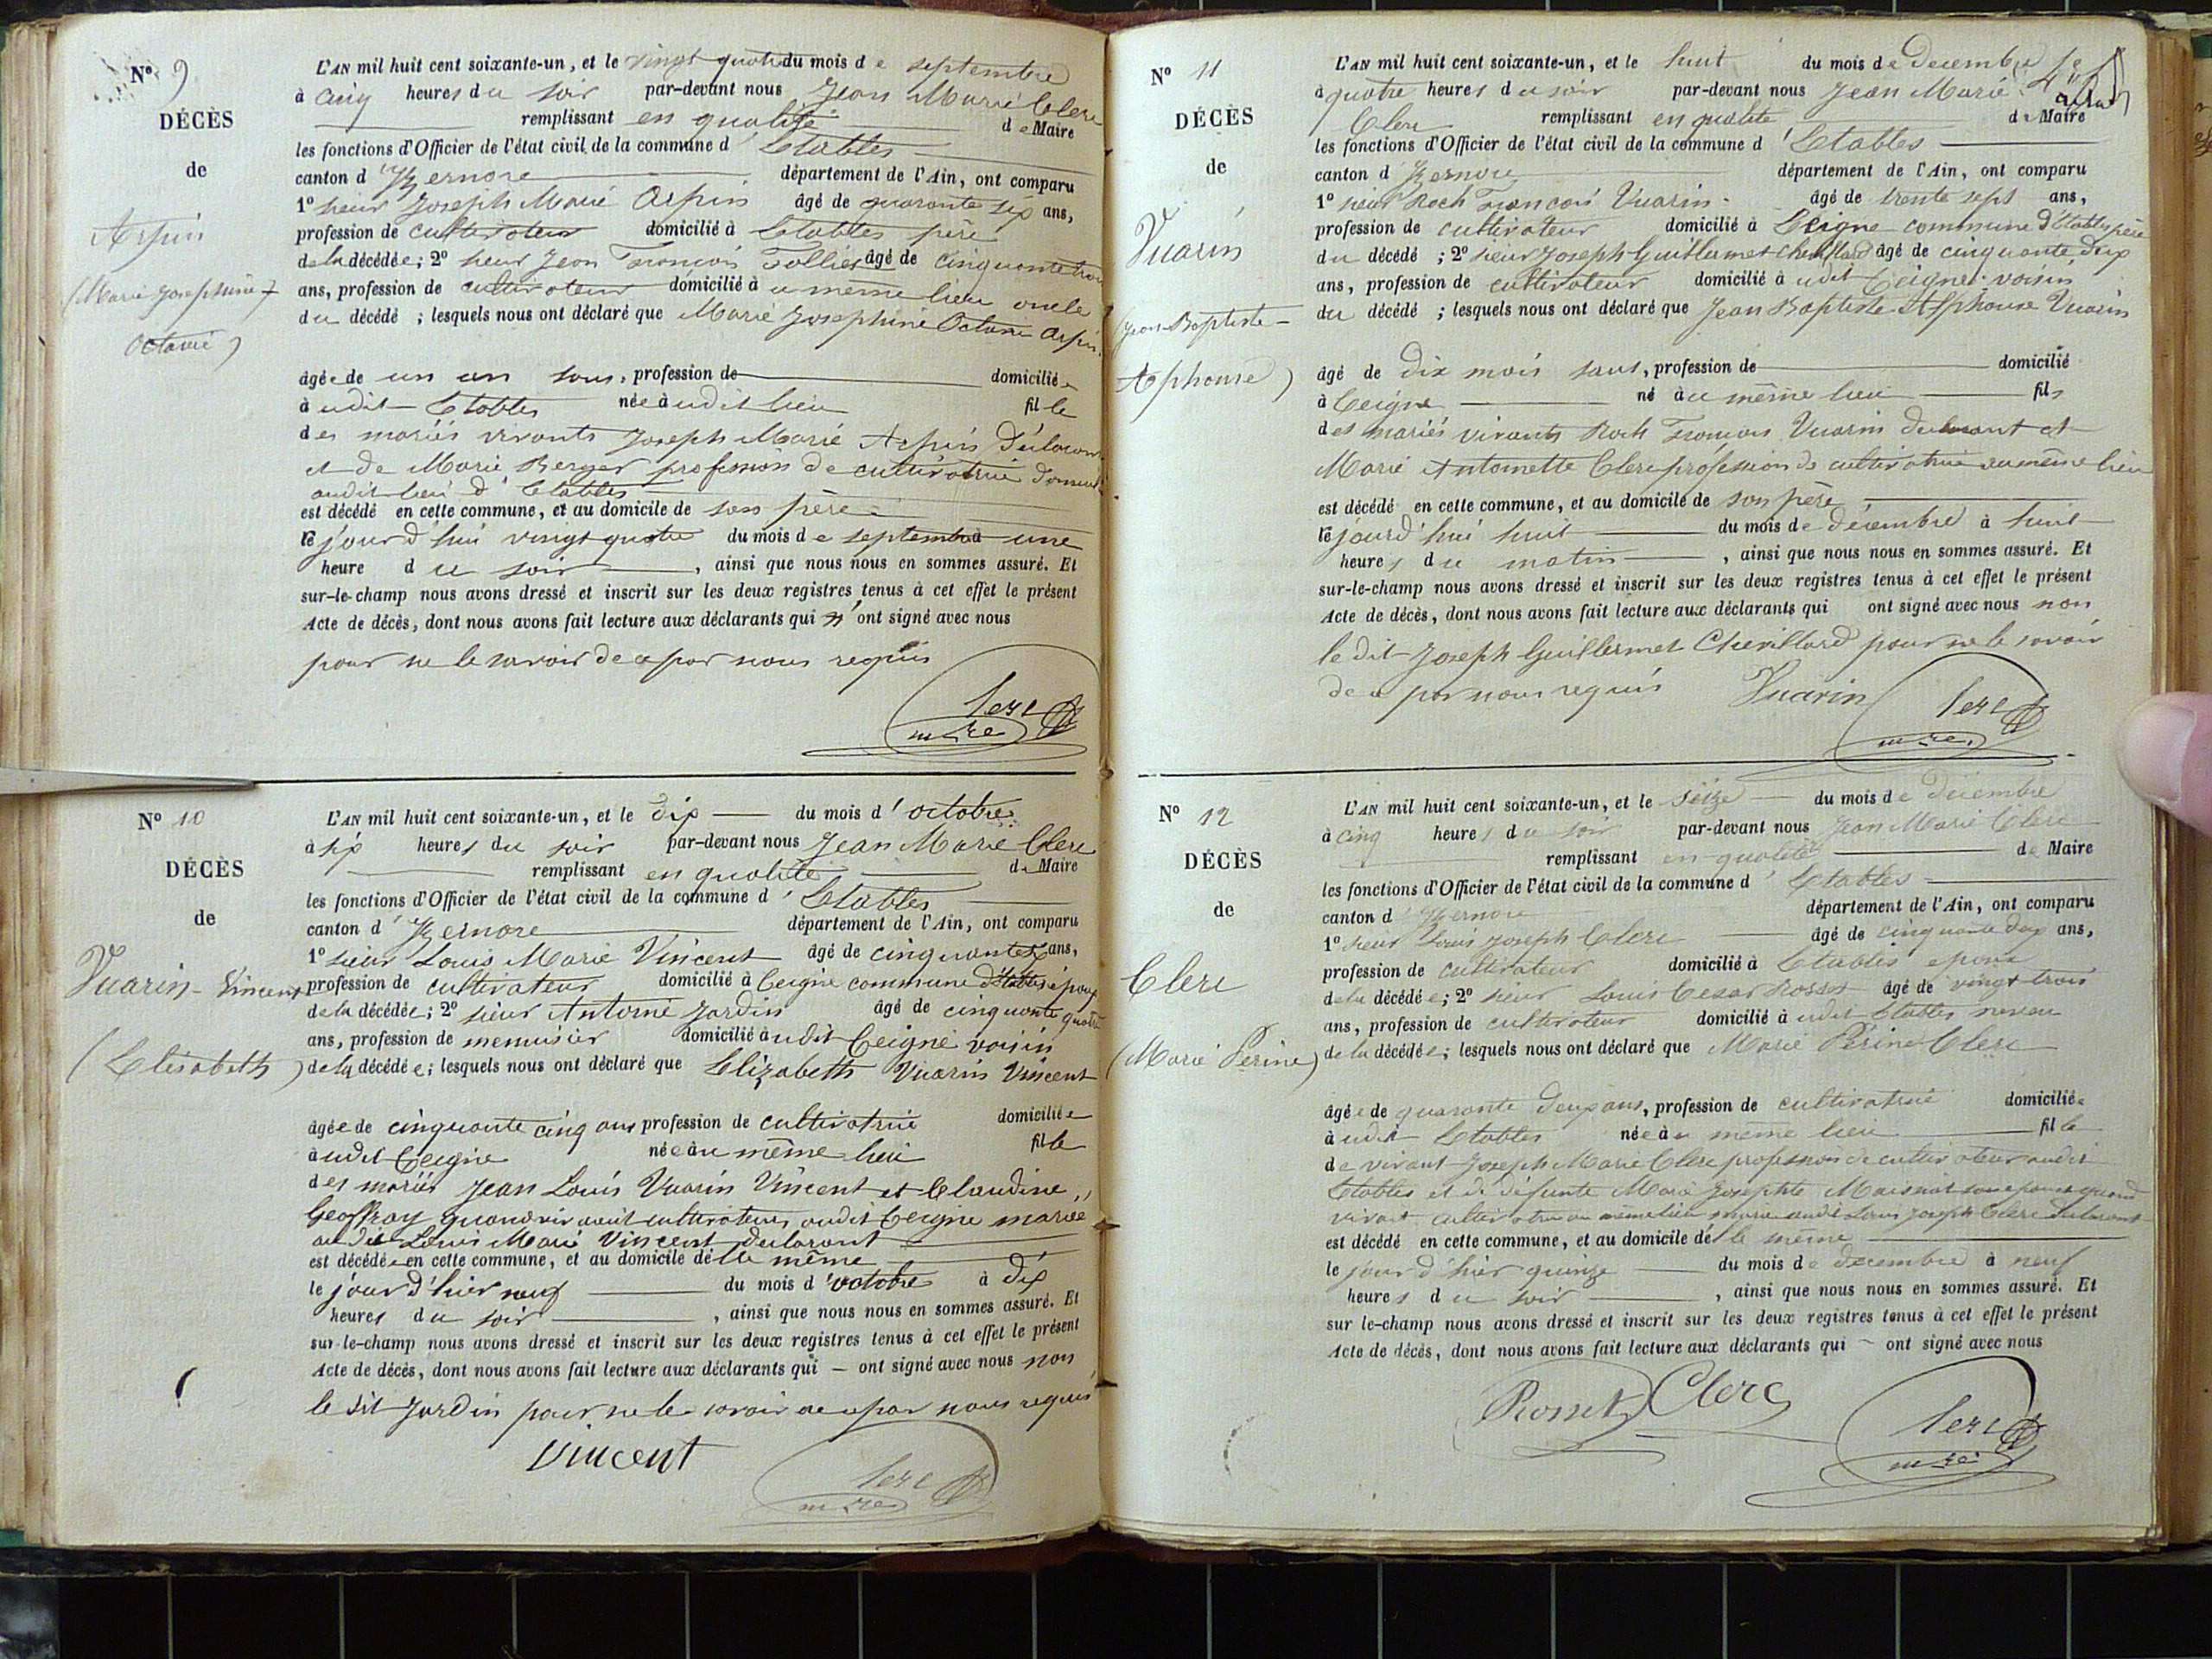 Nº 9
DÉCÈS
de
Arpin
(Marie Josephine
Octavie)
L'AN mil huit cent soixante-un, et le vingt quatre du mois de septembre
à cinq heures du soir par-devant nous Jean Marie Clerc
remplissant en qualité de Maire
les fonctions d'Officier de l'état civil de la commune d'Etables
canton d'Izernore département de l'Ain, ont comparu
1º sieur Joseph Marie Arpin âgé de quarante six ans,
profession de cultivateur domicilié à Etables père
de la décédée; 2º sieur Jean François Tollier âgé de cinquante trois
ans, profession de cultivateur domicilié à u même lieu oncle
du décédé ; lesquels nous ont déclaré que Marie Josephine Octavie Arpin
âgée de un an sans, profession de domiciliée
à udit Etables née à udit lieu fille
des mariés vivants Joseph Marie Arpin déclarant
et de Marie Berger profession de cultivatrice
audit lieu d'Etables
est décédé en cette commune, et au domicile de son père
le jourd'hui vingt quatre du mois de septembre à une
heure du soir , ainsi que nous nous en sommes assuré. Et
sur-le-champ nous avons dressé et inscrit sur les deux registres tenus à cet effet le présent
Acte de décès, dont nous avons fait lecture aux déclarants qui n'ont signé avec nous
pour ne le savoir de ce par nous requis
Clerc
mre
Nº 10
DÉCÈS
de
Vuarin-Vincent
(Elisabeth)
L'AN mil huit cent soixante-un, et le dix du mois d'octobre
à six heures du soir par-devant nous Jean Marie Clerc
remplissant en qualité de Maire
les fonctions d'Officier de l'état civil de la commune d'Etables
canton d'Izernore département de l'Ain, ont comparu
1º sieur Louis Marie Vincent âgé de cinquante ans,
profession de cultivateur domicilié à Ceigne commune d'Etables époux
de la décédée; 2º sieur Antoine Jardin âgé de cinquante quatre
ans, profession de menuisier domicilié à udit Ceigne voisin
de la décédée; lesquels nous ont déclaré que Elizabeth Vuarin Vincent
âgée de cinquante cinq ans profession de cultivatrice domiciliée
à udit Ceigne née àu même lieu fille
des mariés Jean Louis Vuarin Vincent et Claudine
Geoffray quand vivaient cultivateurs audit Ceigne mariée
au dit Louis Marie Vincent déclarant
est décédée en cette commune, et au domicile de le même
le jour d'hier neuf du mois d'octobre à dix
heures du soir , ainsi que nous nous en sommes assuré. Et
sur-le-champ nous avons dressé et inscrit sur les deux registres tenus à cet effet le présent
Acte de décès, dont nous avons fait lecture aux déclarants qui — ont signé avec nous non
le dit Jardin pour ne le savoir de ce par nous requis
Vincent
Clerc
mre
Nº 11
DÉCÈS
de
Vuarin
(Jean-Baptiste-
Alphonse)
L'AN mil huit cent soixante-un, et le huit du mois de Decembre
à quatre heures du soir par-devant nous Jean Marie
Clerc remplissant en qualité de Maire
les fonctions d'Officier de l'état civil de la commune d'Etables
canton d'Izernore département de l'Ain, ont comparu
1º sieur Roch François Vuarin âgé de trente sept ans,
profession de cultivateur domicilié à Ceigne commune d'Etables père
du décédé ; 2º sieur Joseph Guillermet Chevillard âgé de cinquante deux
ans, profession de cultivateur domicilié à udit Ceigne voisin
du décédé ; lesquels nous ont déclaré que Jean Baptiste Alphonse Vuarin
âgé de dix mois sans, profession de domicilié
à Ceigne né àu même lieu fils
des mariés vivants Roch François Vuarin déclarant et
Marie Antoinette Clerc profession de cultivatrice au même lieu
est décédé en cette commune, et au domicile de son père
le jourd'hui huit du mois de décembre à huit
heures du matin , ainsi que nous nous en sommes assuré. Et
sur-le-champ nous avons dressé et inscrit sur les deux registres tenus à cet effet le présent
Acte de décès, dont nous avons fait lecture aux déclarants qui ont signé avec nous non
le dit Joseph Guillermet Chevillard pour ne le savoir
de ce par nous requis Vuarin Clerc
mre
Nº 12
DÉCÈS
de
Clerc
(Marie Perine)
L'AN mil huit cent soixante-un, et le seize du mois de Decembre
à cinq heures du soir par-devant nous Jean Marie Clerc
remplissant en qualité de Maire
les fonctions d'Officier de l'état civil de la commune d'Etables
canton d'Izernore département de l'Ain, ont comparu
1º sieur Louis Joseph Clerc âgé de cinquante deux ans,
profession de cultivateur domicilié à Etables époux
de la décédée; 2º sieur Louis Cesar Rosset âgé de vingt trois
ans, profession de cultivateur domicilié à udit Etables neveu
de la décédée; lesquels nous ont déclaré que Marie Périne Clerc
âgée de quarante deux ans, profession de cultivatrice domiciliée
à udit Etables née àu même lieu fille
de vivant Joseph Marie Clerc profession de cultivateur audit
Etables et de défunte Marie Josephte son épouse quand
vivait cultivatrice au même lieu mariée audit Louis Joseph Clerc déclarant
est décédé en cette commune, et au domicile de le même
le jour d'hier quinze du mois de decembre à neuf
heures du soir , ainsi que nous nous en sommes assuré. Et
sur le-champ nous avons dressé et inscrit sur les deux registres tenus à cet effet le présent
Acte de décès, dont nous avons fait lecture aux déclarants qui ont signé avec nous
Rosset Clerc
Clerc
mre